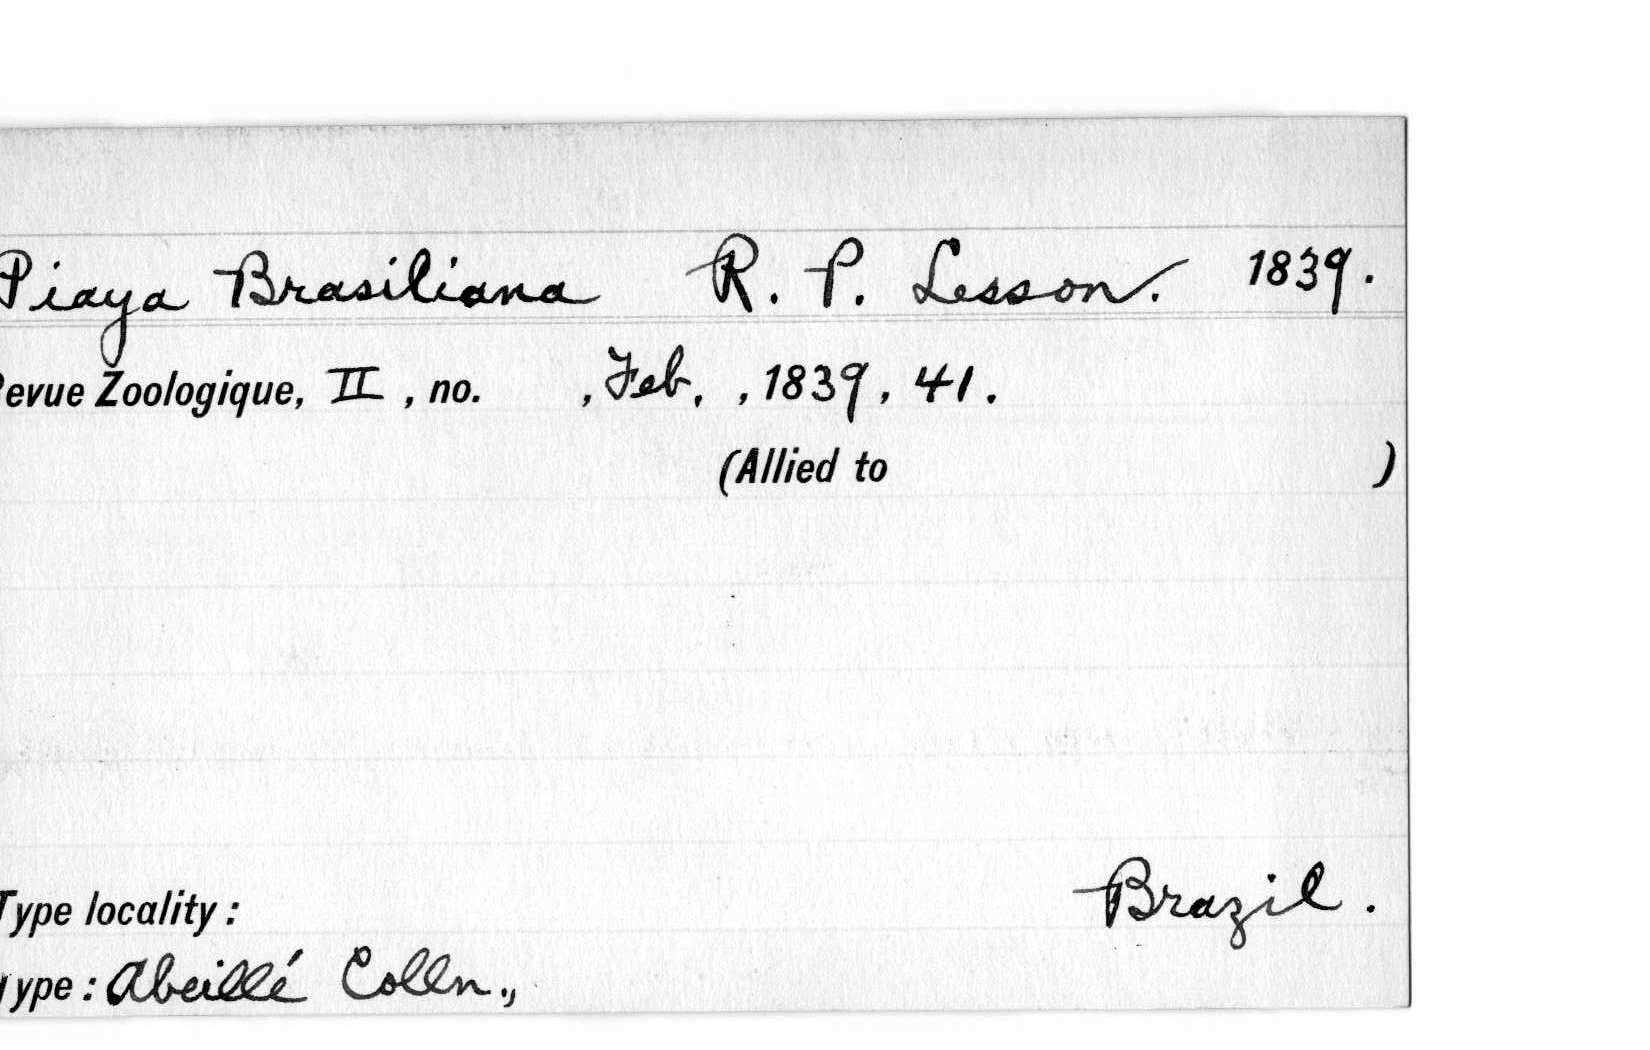 Piaya Brasiliana R. P. Lesson. 1839.
evue Zoologique, II, no. , Feb. , 1839, 41.
(Allied to )
Type locality: Brazil.
ype: Abeillé Colln.,